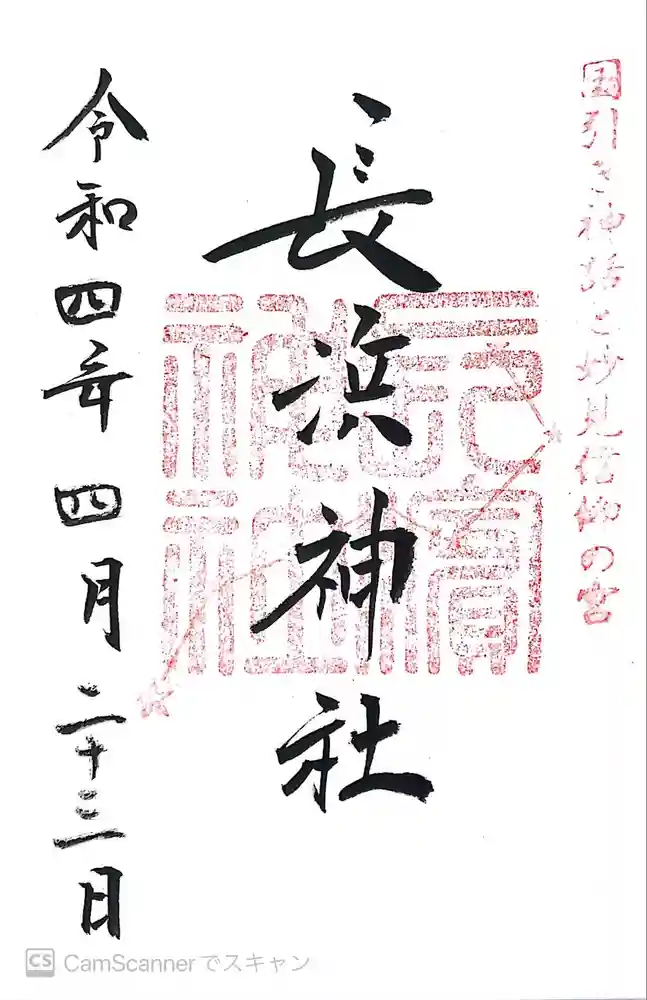 国引き神話と妙見信仰の宮
長浜神社
長濱神社
令和四年四月二十三日
CS CamScannerでスキャン